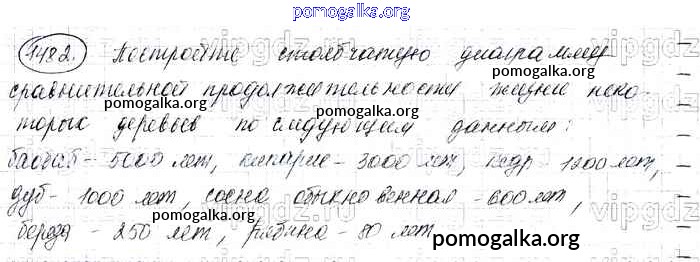 pomogalka.org
1482. Постройте столбчатую диаграмму
сравнительной продолжительности жизни неко-
pomogalka.org pomogalka.org
торых деревьев по следующим данным:
pomogalka.org
баобаб - 5000 лет, кипарис - 3000 лет, кедр - 1200 лет,
pomogalka.org
дуб - 1000 лет, сосна обыкновенная - 600 лет,
pomogalka.org
береза - 250 лет, рябина - 80 лет
pomogalka.org